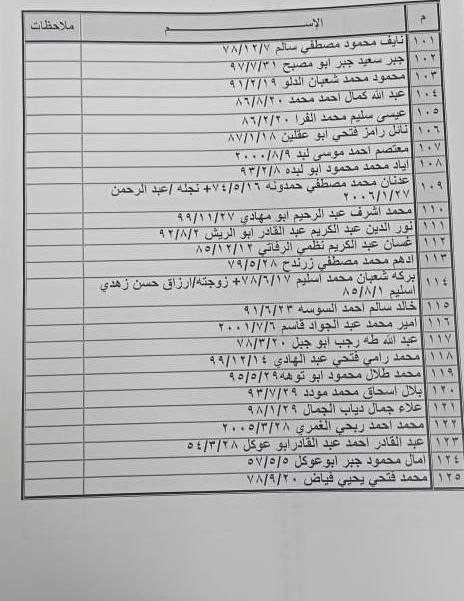 م الاســـم ملاحظات
١٠١ نايف محمود مصطفي سالم ٧٨/١٢/٧
١٠٢ جبر سعيد جبر ابو مصبح ٩٧/٧/٣١
١٠٣ محمود محمد شعبان الدلو ٩١/٢/١٩
١٠٤ عبد الله كمال احمد محمد ٨٦/٨/٢٠
١٠٥ عيسى سليم محمد الفرا ٨٦/٢/٢٠
١٠٦ نائل رامز فتحي ابو عقلين ٨٧/١/١٨
١٠٧ معتصم احمد موسى لبد ٢٠٠٠/٨/٩
١٠٨ اياد محمد محمود ابو لبده ٩٣/٢/٨
١٠٩ عدنان محمد مصطفي حمدونه ٧٤/٥/١٦+ نجله /عبد الرحمن
٢٠٠٦/١/٢٧
١١٠ محمد اشرف عبد الرحيم ابو مهادي ٩٩/١١/٢٧
١١١ نور الدين عبد الكريم عبد القادر ابو الريش ٩٢/٨/٢
١١٢ غسان عبد الكريم نظمي الرفاتي ٨٥/١٢/١٢
١١٣ ادهم محمد مصطفي زرندح ٧٩/٥/٢٨
١١٤ بركه شعبان محمد اسليم ٧٨/٦/١٧+ زوجته/ارزاق حسن زهدي
اسليم ٨٥/٨/١
١١٥ خالد سالم احمد السوسه ٩١/٦/٢٣
١١٦ امير محمد عبد الجواد قاسم ٢٠٠١/٧/٦
١١٧ عبد الله طه رجب ابو جبل ٧٨/٣/٢٠
١١٨ محمد رامي فتحي عبد الهادي ٩٩/١٢/١٤
١١٩ محمد طلال محمود ابو توهه ٩٥/٥/٢٩
١٢٠ بلال اسحاق محمد مودد ٩٣/٧/٢٩
١٢١ علاء جمال دياب الجمال ٩٨/١/٢٩
١٢٢ محمد احمد ربحي الغمري ٢٠٠٥/٣/٢٨
١٢٣ عبد القادر احمد عبد القادرابو عوكل ٥٤/٣/٢٨
١٢٤ امال محمود جبر ابوعوكل ٥٧/٥/٥
١٢٥ محمد فتحي يحيي فياض ٧٨/٩/٢٠